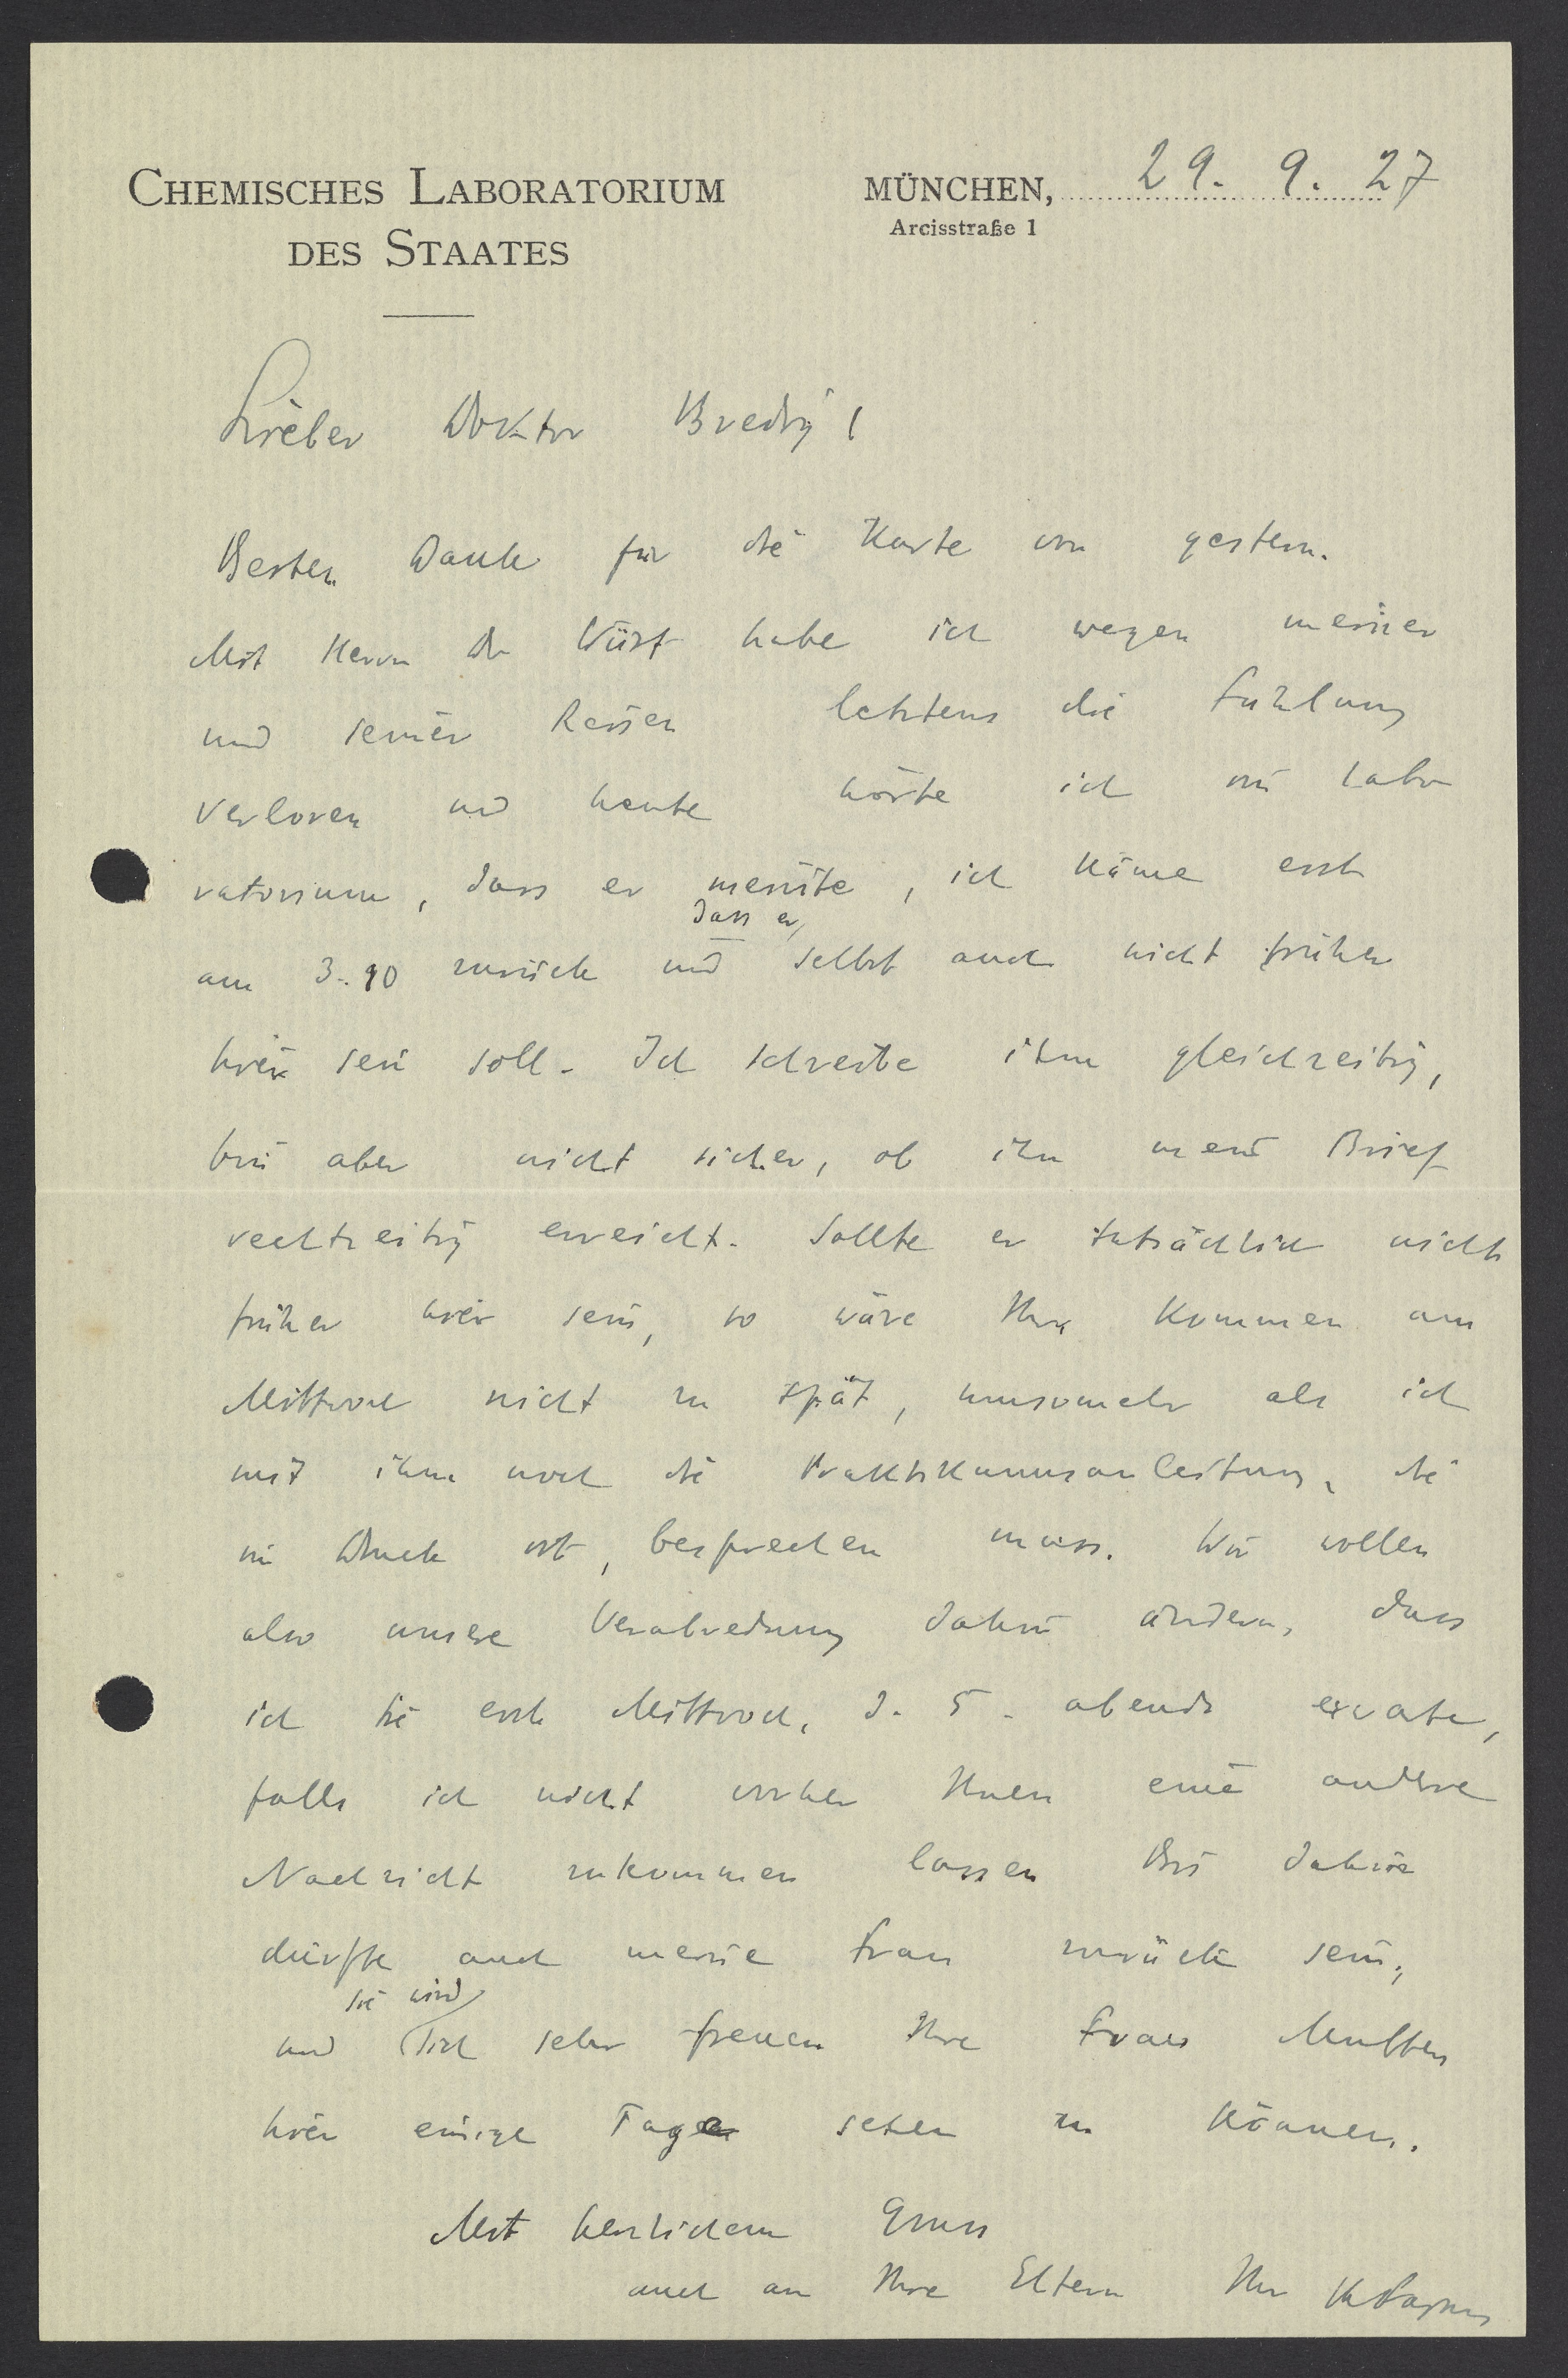 CHEMISCHES LABORATORIUM
DES STAATES
MÜNCHEN, 29. 9. 27
Arcisstraße 1
Lieber Doktor Bredig!
Besten Dank für die Karte von gestern.
Mit Herrn Dr Wüst habe ich wegen meiner
und seiner Reisen letztens die Fühlung
verloren und heute hörte ich im Labo
ratorium, dass er meinte, ich käme erst
dass er
am 3. 10 zurück und selbst auch nicht früher
hier sein soll. Ich schreibe ihm gleichzeitig,
bin aber nicht sicher, ob ihn mein Brief
rechtzeitig erreicht. Sollte er tatsächlich nicht
früher hier sein, so wäre Ihr Kommen am
Mittwoch nicht zu spät, umsomehr als ich
mit ihm noch die Praktikumsanleitung, die
im Druck ist, besprechen muss. Wir wollen
also unsere Verabredung dahin ändern, dass
ich Sie erst Mittwoch, d. 5. abends erwarte,
falls ich nicht vorher Ihnen eine andere
Nachricht zukommen lassen Bis dahin
dürfte auch meine Frau zurück sein,
sie wird
und sich sehr freuen Ihre Frau Mutter
hier einige Tage sehen zu können.
Mit herzlichem Gruss
auch an Ihre Eltern Ihr K Fajans